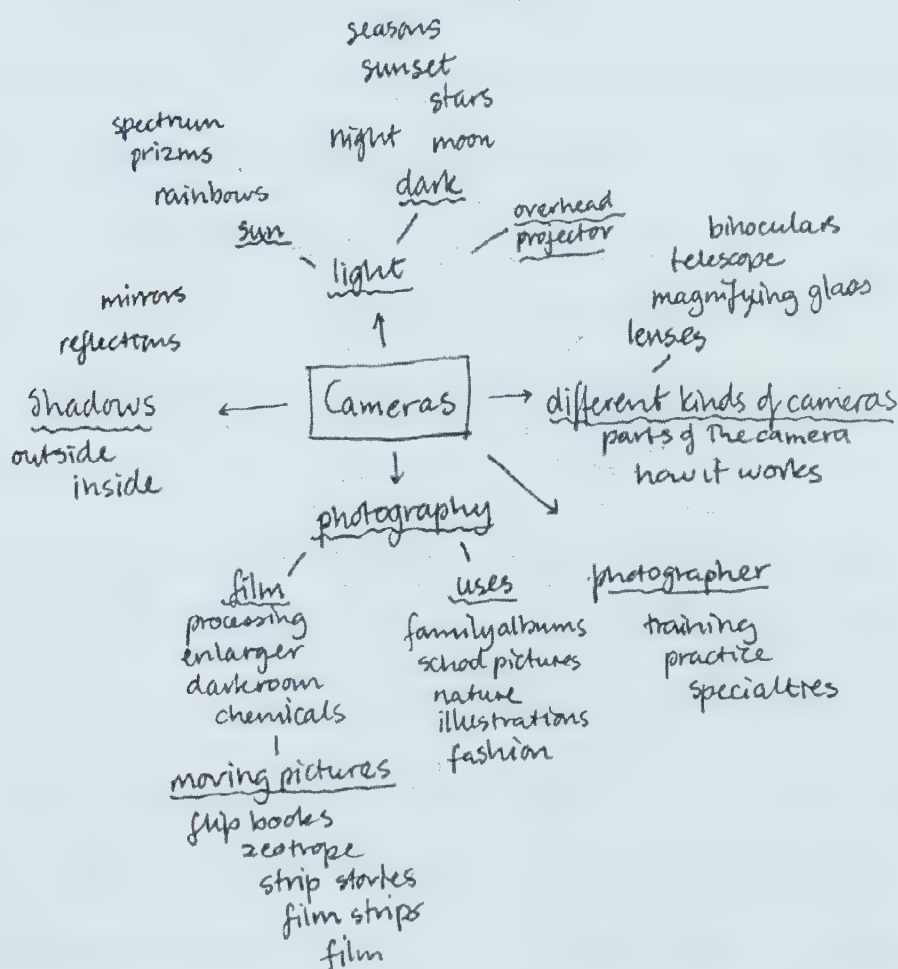 seasons
sunset
stars
night moon
dark
spectrum
prizms
rainbows
sun
overhead
projector
light
mirrors
reflections
Shadows
outside
inside
Cameras
binoculars
telescope
magnifying glass
lenses
different kinds of cameras
parts of the camera
how it works
photography
film
processing
enlarger
darkroom
chemicals
moving pictures
flip books
zeotrope
strip stories
film strips
film
uses
family albums
school pictures
nature
illustrations
fashion
photographer
training
practice
specialties